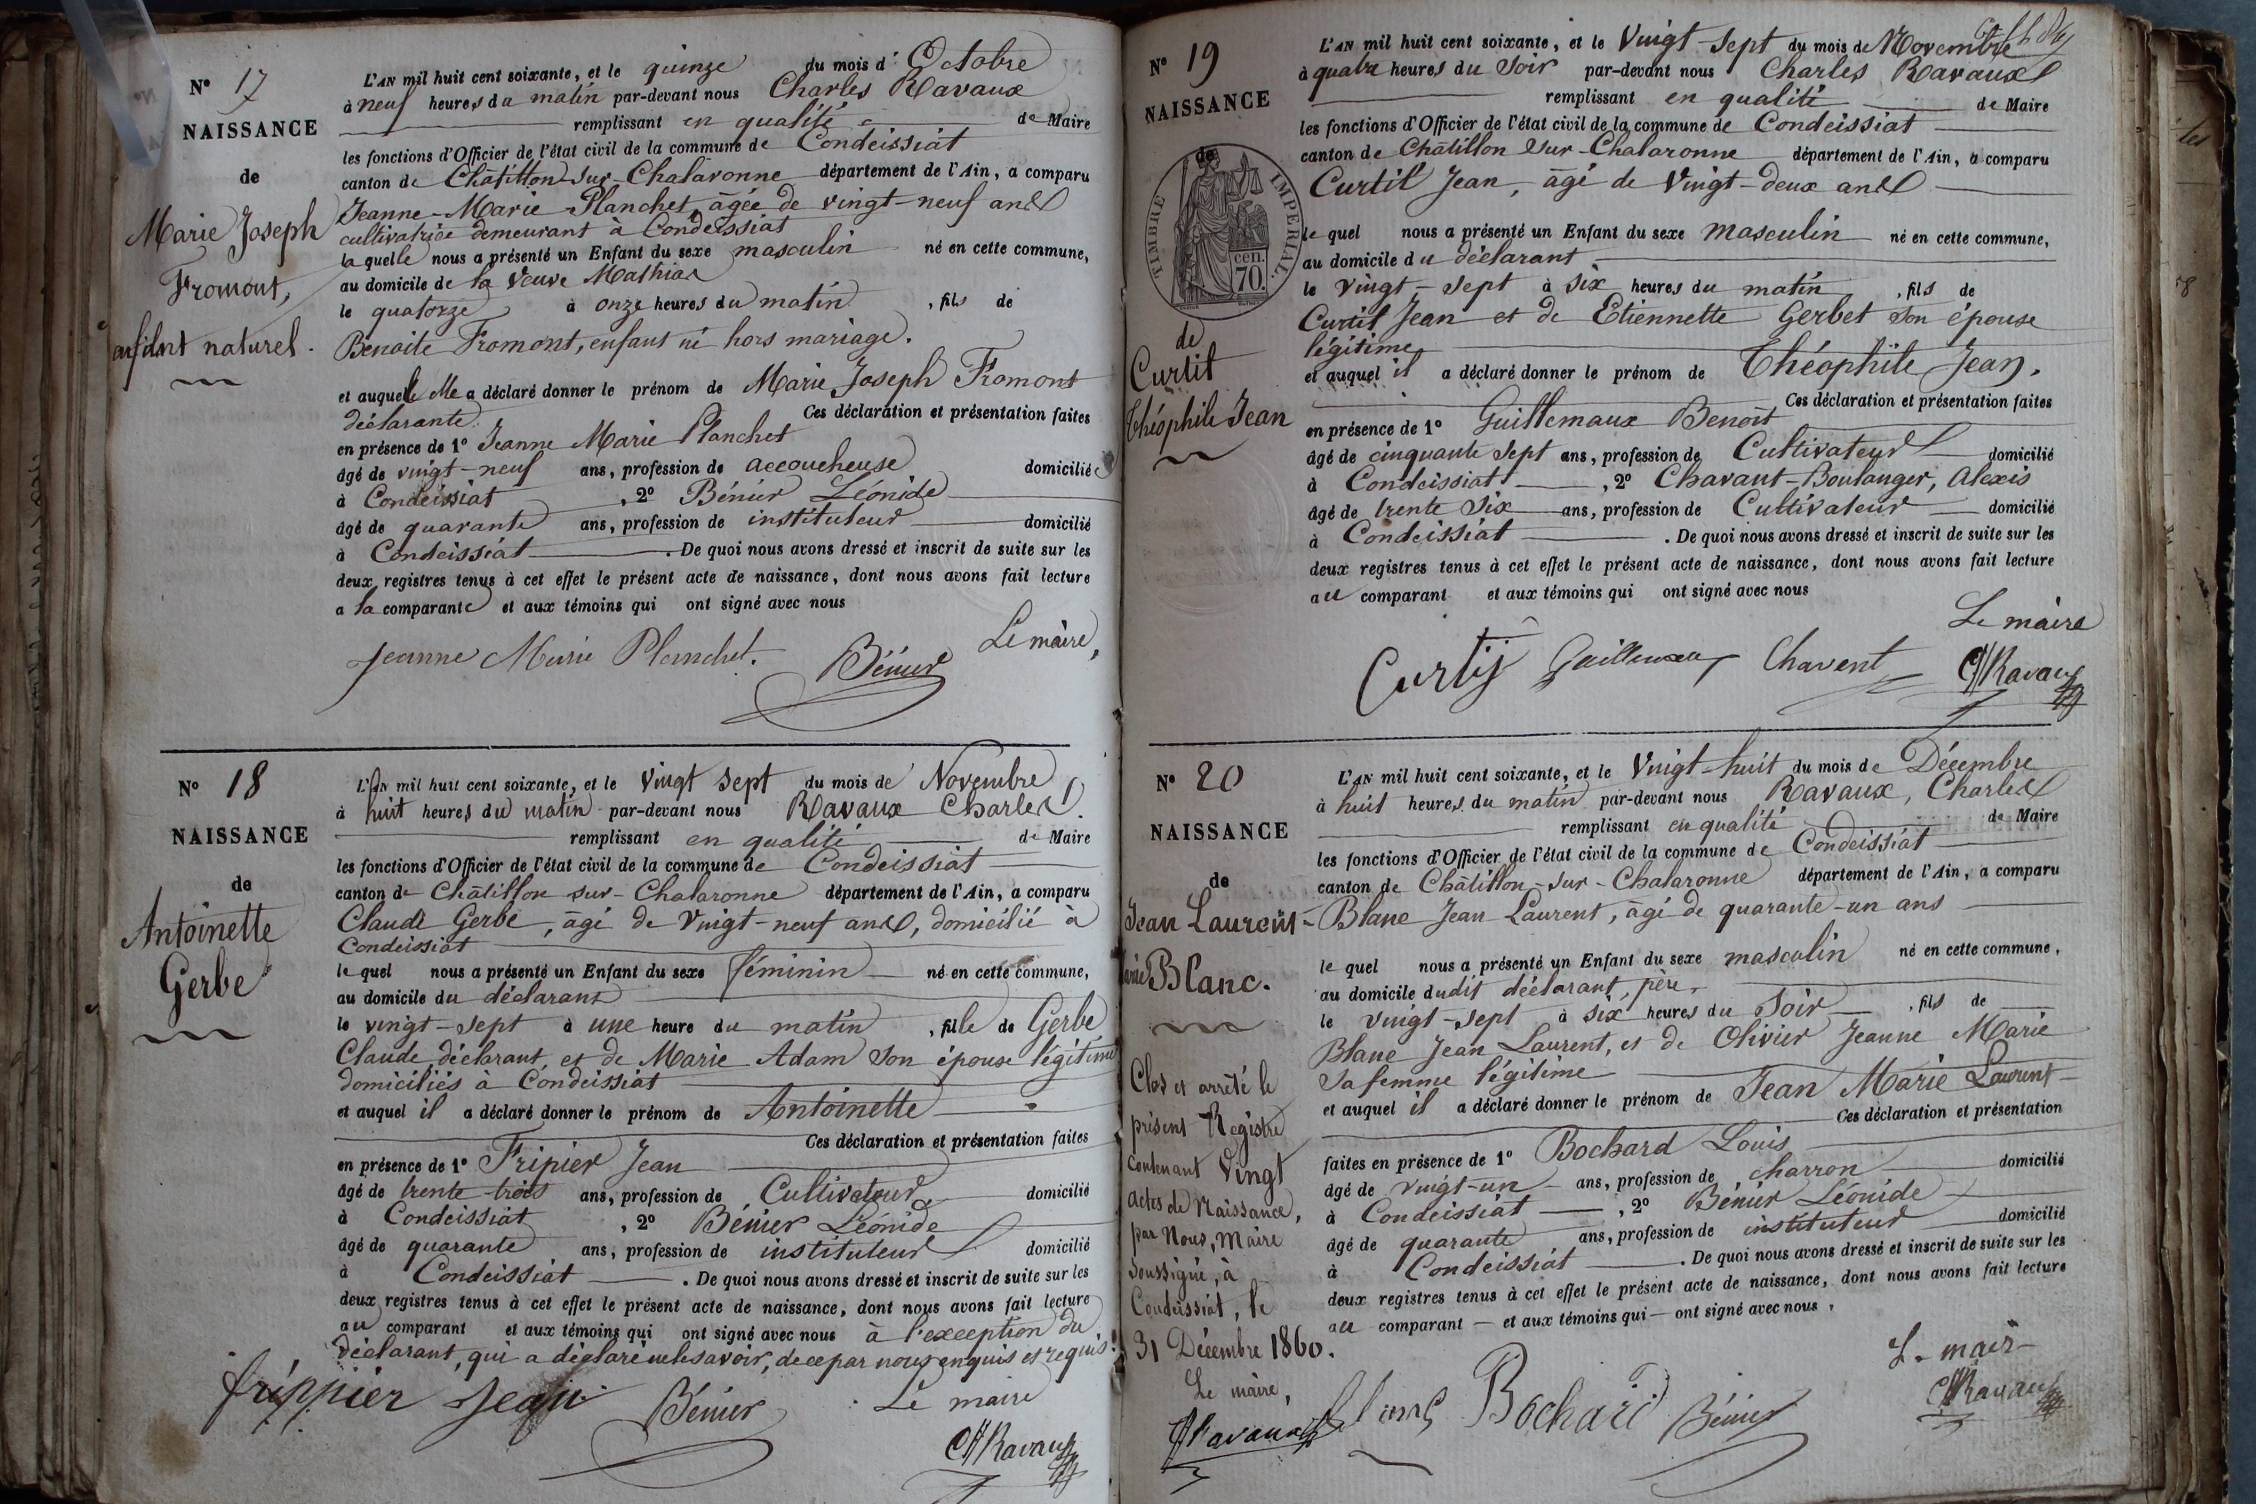 N° 17
NAISSANCE
de
Marie Joseph
Fromont,
enfant naturel.
L'AN mil huit cent soixante, et le quinze du mois d' Octobre
à neuf heures du matin par-devant nous Charles Ravaux
remplissant en qualité de Maire
les fonctions d'Officier de l'état civil de la commune de Condeissiat
canton de Châtillon-sur-Chalaronne département de l'Ain, a comparu
Jeanne-Marie Planchet, âgée de vingt-neuf ans
cultivatrice demeurant à Condeissiat
laquelle nous a présenté un Enfant du sexe masculin né en cette commune,
au domicile de la Veuve Mathias
le quatorze à onze heures du matin, fils de
Benoite Fromont, enfant né hors mariage.
et auquel elle a déclaré donner le prénom de Marie Joseph Fromont
déclarante. Ces déclaration et présentation faites
en présence de 1° Jeanne Marie Planchet
âgé de vingt-neuf ans, profession de accoucheuse domiciliée
à Condeissiat, 2° Bénier Léonide
âgé de quarante ans, profession de instituteur domicilié
à Condeissiat. De quoi nous avons dressé et inscrit de suite sur les
deux registres tenus à cet effet le présent acte de naissance, dont nous avons fait lecture
a la comparante et aux témoins qui ont signé avec nous
Le maire,
Jeanne Marie Planchet. Bénier
N° 18
NAISSANCE
de
Antoinette
Gerbe
L'AN mil huit cent soixante, et le Vingt sept du mois de Novembre
à huit heures du matin par-devant nous Ravaux Charles.
remplissant en qualité de Maire
les fonctions d'Officier de l'état civil de la commune de Condeissiat
canton de Châtillon sur-Chalaronne département de l'Ain, a comparu
Claude Gerbe, âgé de Vingt-neuf ans, domicilié à
Condeissiat
lequel nous a présenté un Enfant du sexe féminin né en cette commune,
au domicile du déclarant
le vingt-sept à une heure du matin, fille de Gerbe
Claude, déclarant, et de Marie Adam son épouse légitime
domiciliés à Condeissiat
et auquel il a déclaré donner le prénom de Antoinette
Ces déclaration et présentation faites
en présence de 1° Fripier Jean
âgé de trente-trois ans, profession de Cultivateur domicilié
à Condeissiat, 2° Bénier Léonide
âgé de quarante ans, profession de instituteur domicilié
à Condeissiat. De quoi nous avons dressé et inscrit de suite sur les
deux registres tenus à cet effet le présent acte de naissance, dont nous avons fait lecture
au comparant et aux témoins qui ont signé avec nous à l'exception du
déclarant, qui a déclaré ne le savoir, de ce par nous enquis et requis.
frippier Jean Bénier Le maire
Ch Ravaux
N° 19
NAISSANCE
de
TIMBRE IMPERIAL.
cen.
70.
de
Curtil
Théophile Jean
L'AN mil huit cent soixante, et le Vingt-sept du mois de Novembre
à quatre heures du Soir par-devant nous Charles Ravaux
remplissant en qualité de Maire
les fonctions d'Officier de l'état civil de la commune de Condeissiat
canton de Châtillon sur-Chalaronne département de l'Ain, a comparu
Curtil Jean, âgé de Vingt-deux ans
lequel nous a présenté un Enfant du sexe masculin né en cette commune,
au domicile du déclarant
le vingt-sept à six heures du matin, fils de
Curtil Jean et de Etiennette Gerbet son épouse
légitime
et auquel il a déclaré donner le prénom de Théophile Jean.
Ces déclaration et présentation faites
en présence de 1° Guillemaux Benoit
âgé de cinquante sept ans, profession de Cultivateur domicilié
à Condeissiat, 2° Chavant-Boulanger, Alexis
âgé de trente six ans, profession de Cultivateur domicilié
à Condeissiat. De quoi nous avons dressé et inscrit de suite sur les
deux registres tenus à cet effet le présent acte de naissance, dont nous avons fait lecture
au comparant et aux témoins qui ont signé avec nous
Le maire
Curtij Guillemaux Chavent Ch Ravaux
N° 20
NAISSANCE
de
Jean Laurent
Blanc.
L'AN mil huit cent soixante, et le Vingt-huit du mois de Décembre
à huit heures du matin par-devant nous Ravaux, Charles
remplissant en qualité de Maire
les fonctions d'Officier de l'état civil de la commune de Condeissiat
canton de Châtillon-sur-Chalaronne département de l'Ain, a comparu
Blanc Jean Laurent, âgé de quarante-un ans
lequel nous a présenté un Enfant du sexe masculin né en cette commune,
au domicile dudit déclarant, père,
le vingt-sept à six heures du Soir, fils de
Blanc Jean Laurent, et de Olivier Jeanne Marie
sa femme légitime
et auquel il a déclaré donner le prénom de Jean Marie Laurent
Ces déclaration et présentation
faites en présence de 1° Bochard Louis
âgé de vingt-un ans, profession de charron domicilié
à Condeissiat, 2° Bénier Léonide
âgé de quarante ans, profession de instituteur domicilié
à Condeissiat. De quoi nous avons dressé et inscrit de suite sur les
deux registres tenus à cet effet le présent acte de naissance, dont nous avons fait lecture
au comparant et aux témoins qui ont signé avec nous,
Le maire
Blanc Bochard Bénier Ch Ravaux
Clos et arrêté le
présent Registre
contenant Vingt
actes de Naissance,
par Nous, Maire
soussigné, à
Condeissiat, le
31 Décembre 1860.
Le maire,
Ch Ravaux